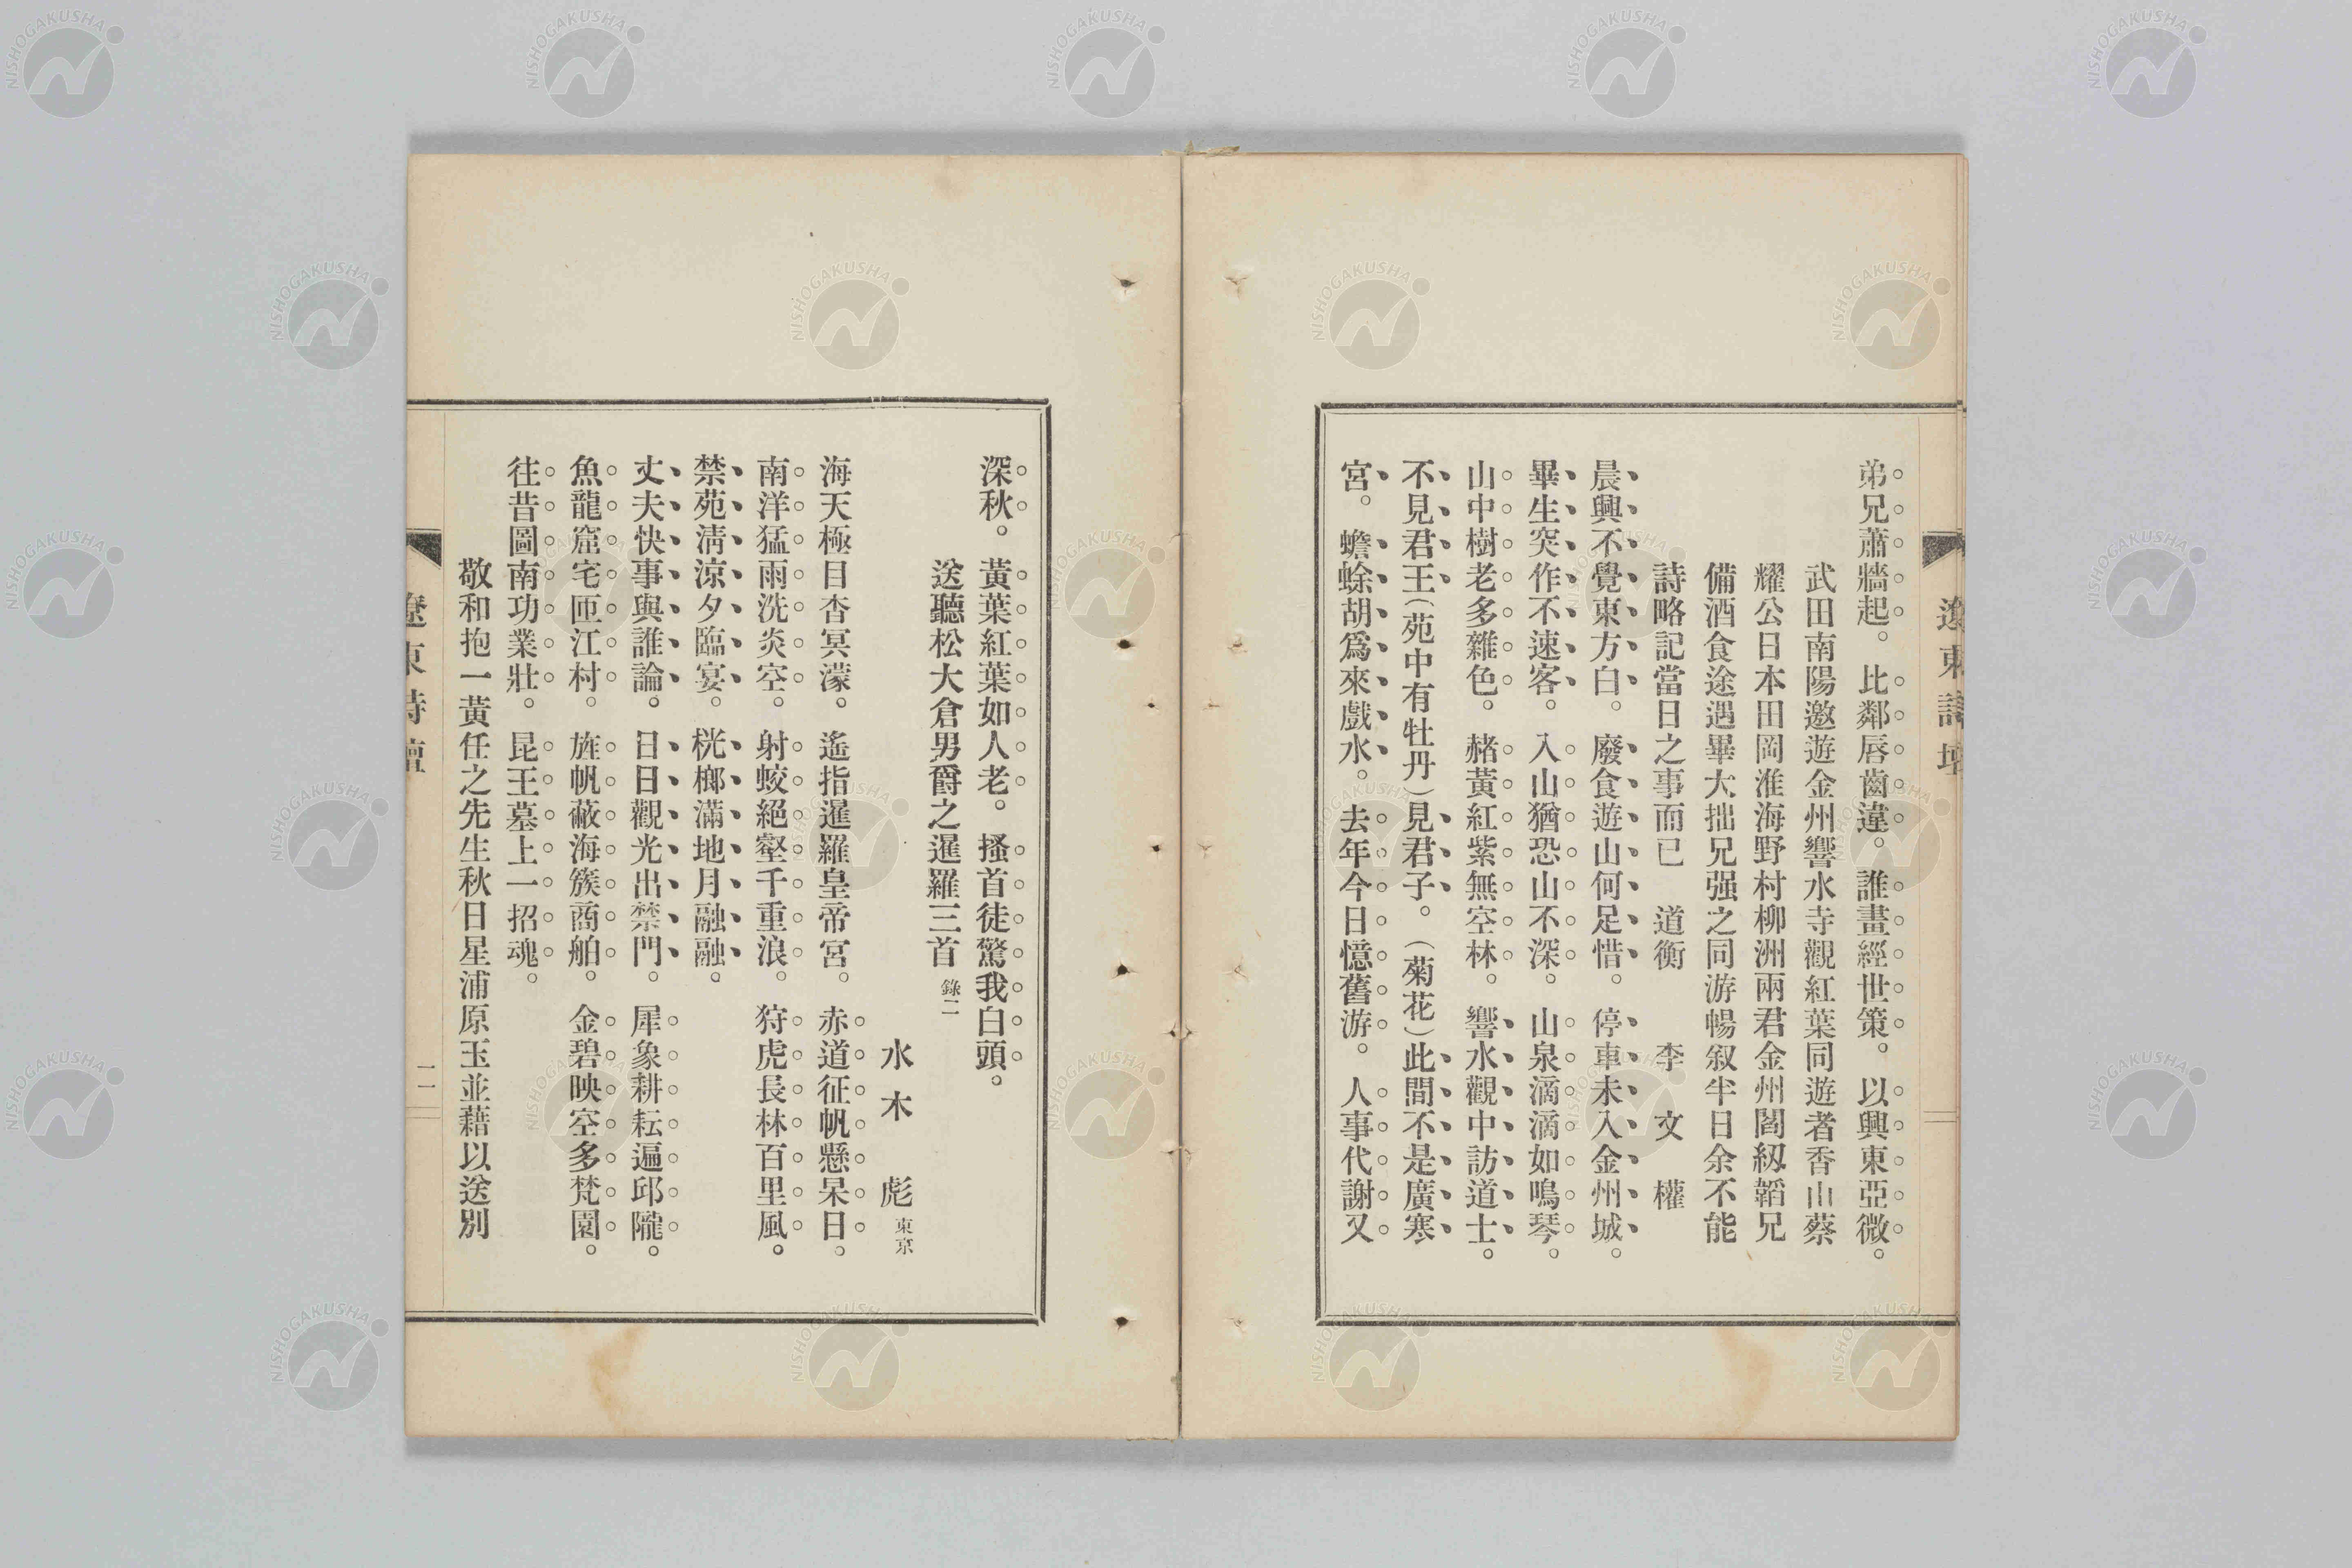 遼東詩壇
弟兄蕭牆起。比鄰唇齒違。誰畫經世策。以興東亞微。
武田南陽邀遊金州響水寺觀紅葉同遊者香山蔡
耀公日本田岡淮海野村柳洲兩君金州閻紉韜兄
備酒食途遇畢大拙兄强之同游暢叙半日余不能
詩略記當日之事而已 道衡 李文權
晨興不覺東方白。廢食遊山何足惜。停車未入金州城。
畢生突作不速客。入山猶恐山不深。山泉滴滴如鳴琴。
山中樹老多雜色。赭黃紅紫無空林。響水觀中訪道士。
不見君王(苑中有牡丹)見君子。(菊花)此間不是廣寒
宮。蟾蜍胡爲來戲水。去年今日憶舊游。人事代謝又
深秋。黃葉紅葉如人老。搔首徒驚我白頭。
送聽松大倉男爵之暹羅三首 錄二
水木彪 東京
海天極目杳冥濛。遙指暹羅皇帝宮。赤道征帆懸杲日。
南洋猛雨洗炎空。射蛟絕壑千重浪。狩虎長林百里風。
禁苑淸凉夕臨宴。桄榔滿地月融融。
丈夫快事與誰論。日日觀光出禁門。犀象耕耘遍邱隴。
魚龍窟宅匝江村。旌帆蔽海簇商舶。金碧映空多梵園。
往昔圖南功業壯。昆王墓上一招魂。
敬和抱一黃任之先生秋日星浦原玉並藉以送別
遼東詩壇
二
NISHOGAKUSHA